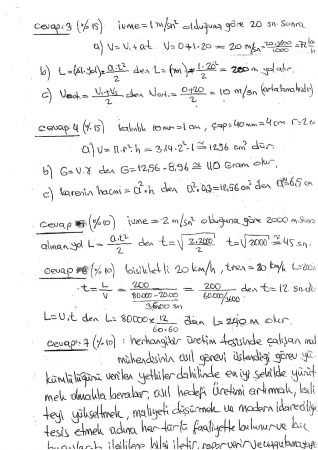 cevap:3 (%15) ivme=1 m/sn² olduğuna göre 20 sn. sonra
a) V=V₁+at. V=0+1.20 = 20 m/sn = 20.3600/1000 = 72 km/h
b) L=(Al.yol) a.t²/2 den L=(m) 1.20²/2 = 200 m yol alır.
c) Vort.= V₁+V₂/2 den Vort.= 0+20/2 = 10 m/sn (ortalama hızdır)
cevap 4 (%15) kalınlık 10 mm=1 cm, çap=40 mm=4 cm r=2 c
a) V=π.r².h = 3.14.2².1 ≅ 12,56 cm³ dür.
b) G=V.γ den G=12,56.8,96 ≅ 110 Gram olur.
c) karenin hacmi = a².h den a².0,3=12,56 cm³ den a≅6,5 cm
cevap 5 (%10) ivme=2 m/sn² olduğuna göre 2000 m.
alınan yol L= a.t²/2 den t=√2.2000/2 t=√2000 ≅ 45 sn.
cevap 6 (%10) bisikletli 20 km/h, tren=80 km/h L=200m
t= L/V = 200/80000-20000/3600 = 200/60000/3600 den t=12 sn.dir
L=V.t den L=80000×12/60.60 dan L=240 m olur.
cevap:7 (%10): herhangi bir üretim tesisinde çalışan mak
mühendisinin asıl görevi üstlendiği görev yü
kümlülüğünü verilen yetkiler dahilinde en iyi şekilde yürüt
mek olmakla beraber, asıl hedefi Üretimi artırmak, kali
teyi yükseltmek, maliyeti düşürmek ve modern idareciliği
tesis etmek adına her türlü faaliyette bulunur ve bu
ilgililere bilgi iletir, rapor verir ve